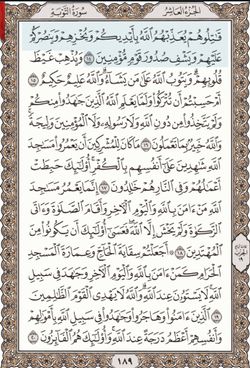 الجزء العاشر
سورة التوبة
قَٰتِلُوهُمْ يُعَذِّبْهُمُ ٱللَّهُ بِأَيْدِيكُمْ وَيُخْزِهِمْ وَيَنصُرْكُمْ
عَلَيْهِمْ وَيَشْفِ صُدُورَ قَوْمٍ مُّؤْمِنِينَ ١٤ وَيُذْهِبْ غَيْظَ
قُلُوبِهِمْ وَيَتُوبُ ٱللَّهُ عَلَىٰ مَن يَشَآءُ وَٱللَّهُ عَلِيمٌ حَكِيمٌ ١٥
أَمْ حَسِبْتُمْ أَن تُتْرَكُوا۟ وَلَمَّا يَعْلَمِ ٱللَّهُ ٱلَّذِينَ جَٰهَدُوا۟ مِنكُمْ
وَلَمْ يَتَّخِذُوا۟ مِن دُونِ ٱللَّهِ وَلَا رَسُولِهِۦ وَلَا ٱلْمُؤْمِنِينَ وَلِيجَةً
وَٱللَّهُ خَبِيرٌۢ بِمَا تَعْمَلُونَ ١٦ مَا كَانَ لِلْمُشْرِكِينَ أَن يَعْمُرُوا۟ مَسَٰجِدَ
ٱللَّهِ شَٰهِدِينَ عَلَىٰٓ أَنفُسِهِم بِٱلْكُفْرِ أُو۟لَٰٓئِكَ حَبِطَتْ
أَعْمَٰلُهُمْ وَفِى ٱلنَّارِ هُمْ خَٰلِدُونَ ١٧ إِنَّمَا يَعْمُرُ مَسَٰجِدَ
ٱللَّهِ مَنْ ءَامَنَ بِٱللَّهِ وَٱلْيَوْمِ ٱلْءَاخِرِ وَأَقَامَ ٱلصَّلَوٰةَ وَءَاتَى
ٱلزَّكَوٰةَ وَلَمْ يَخْشَ إِلَّا ٱللَّهَ فَعَسَىٰٓ أُو۟لَٰٓئِكَ أَن يَكُونُوا۟ مِنَ
ٱلْمُهْتَدِينَ ١٨ أَجَعَلْتُمْ سِقَايَةَ ٱلْحَآجِّ وَعِمَارَةَ ٱلْمَسْجِدِ
ٱلْحَرَامِ كَمَنْ ءَامَنَ بِٱللَّهِ وَٱلْيَوْمِ ٱلْءَاخِرِ وَجَٰهَدَ فِى سَبِيلِ
ٱللَّهِ لَا يَسْتَوُۥنَ عِندَ ٱللَّهِ وَٱللَّهُ لَا يَهْدِى ٱلْقَوْمَ ٱلظَّٰلِمِينَ
١٩ ٱلَّذِينَ ءَامَنُوا۟ وَهَاجَرُوا۟ وَجَٰهَدُوا۟ فِى سَبِيلِ ٱللَّهِ بِأَمْوَٰلِهِمْ
وَأَنفُسِهِمْ أَعْظَمُ دَرَجَةً عِندَ ٱللَّهِ وَأُو۟لَٰٓئِكَ هُمُ ٱلْفَآئِزُونَ ٢٠
١٨٩